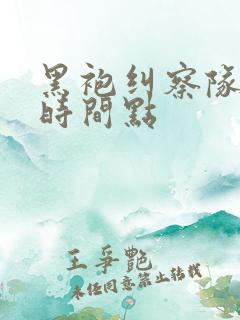 黑袍纠察隊
時間點
王爭艷
未经同意禁止转载